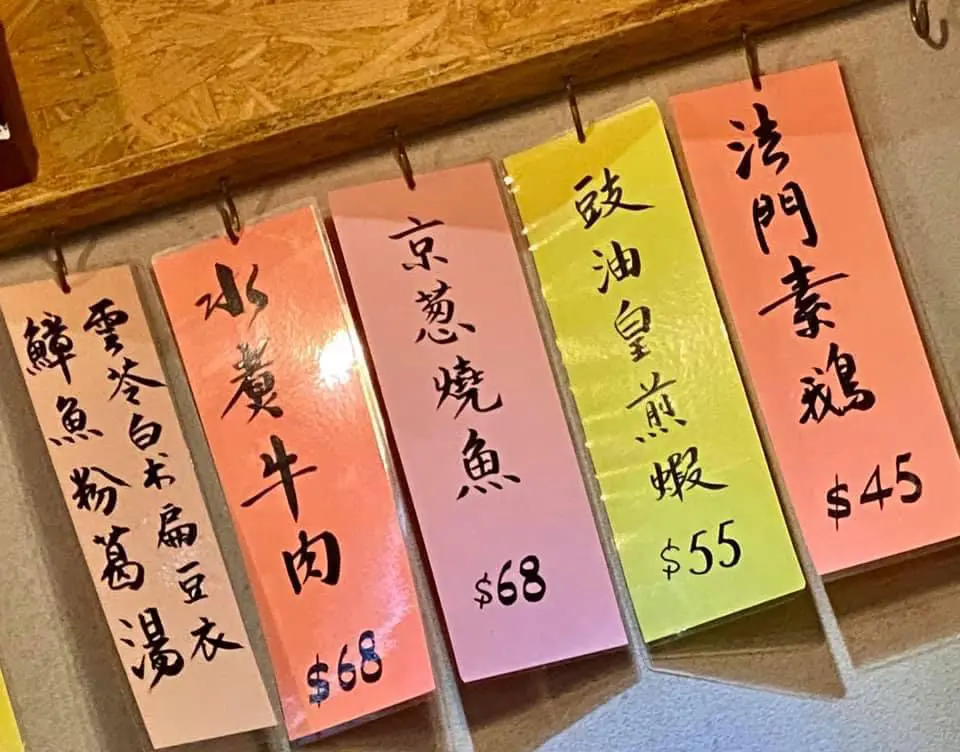 法門素鵝
$45
豉油皇煎蝦
$55
京葱燒魚
$68
水煮牛肉
$68
雲苓白术扁豆衣
鱆魚粉葛湯